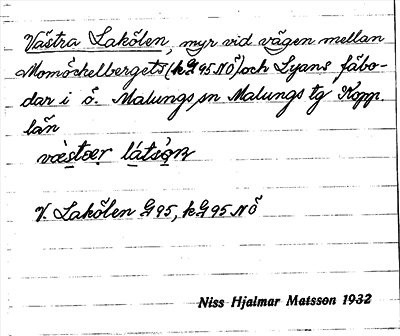 Västra Lakölen, myr vid vägen mellan
Momöckelbergets (kG95NÖ) och Lyans fäbo-
dar i ö. Malungs sn Malungs tg Kopp.
län
V. Lakölen G95, kG95NÖ
Niss Hjalmar Matsson 1932